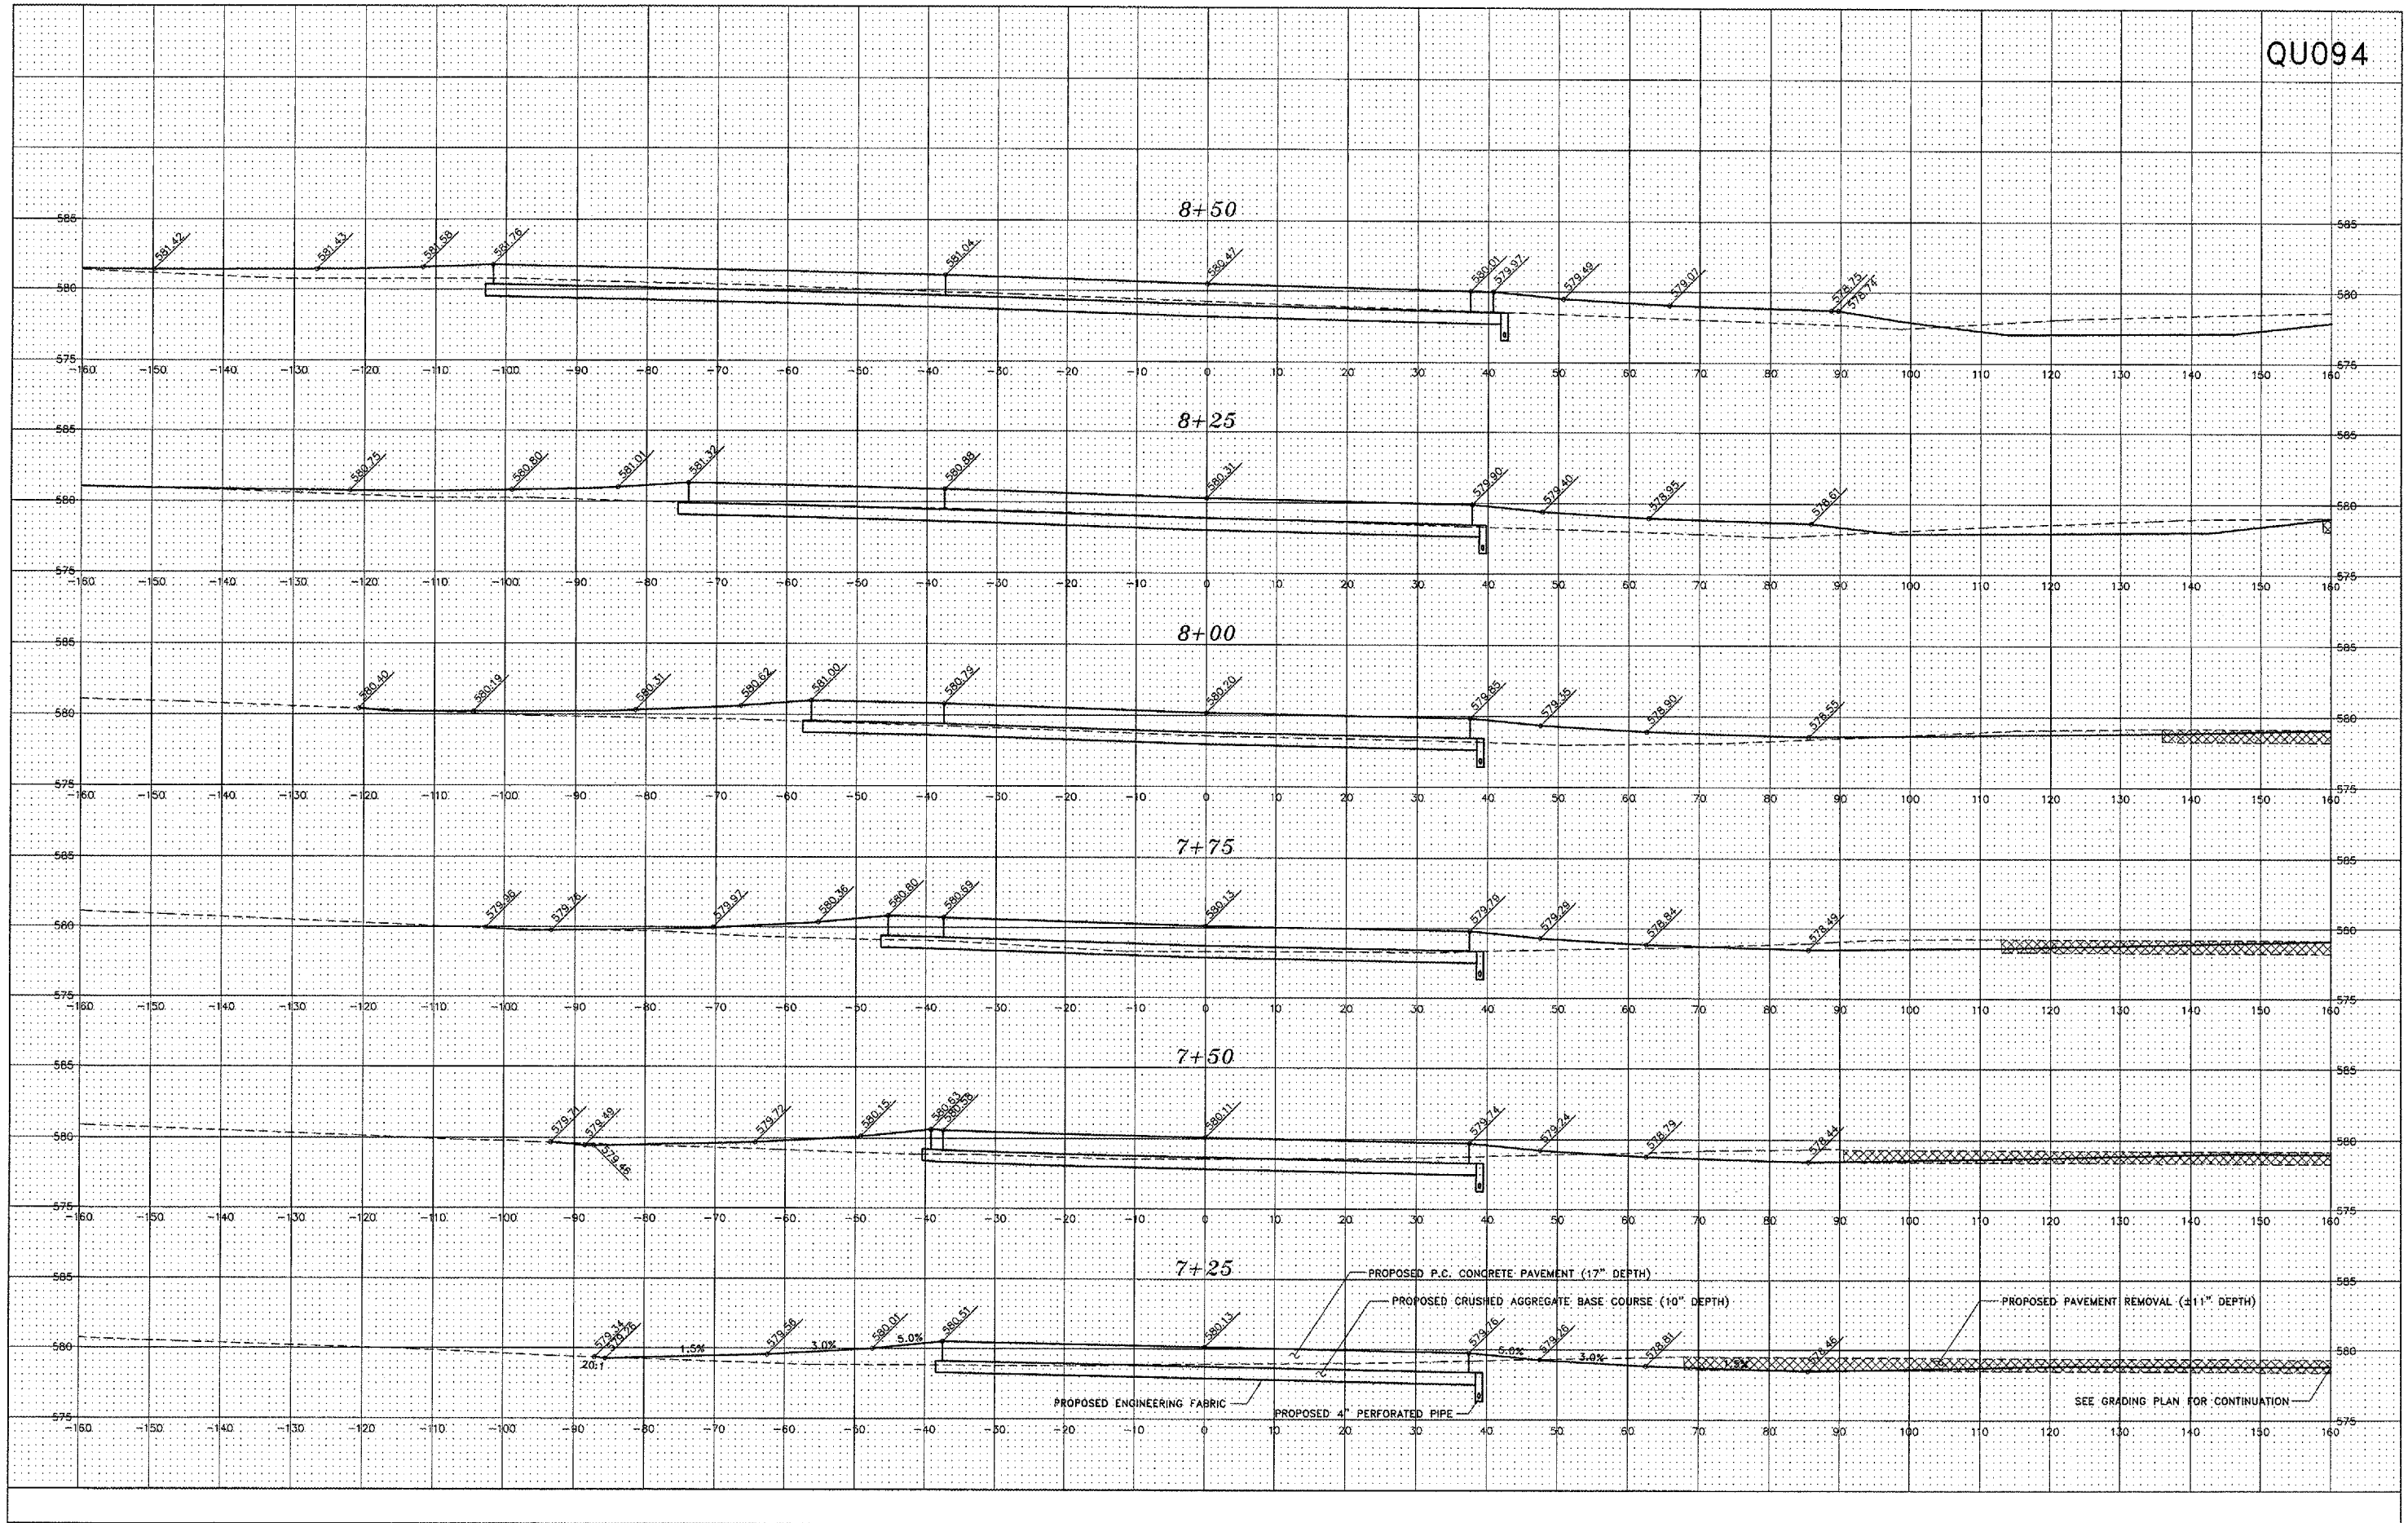 QU094
8+50
585 585
581.42 581.43 581.58 581.76 581.04 580.47 580.01 579.97 579.49 579.07 578.75 578.74
580 580
575 575
-160 -150 -140 -130 -120 -110 -100 -90 -80 -70 -60 -50 -40 -30 -20 -10 0 10 20 30 40 50 60 70 80 90 100 110 120 130 140 150 160
8+25
585 585
580.75 580.80 581.01 581.32 580.88 580.31 579.90 579.40 578.95 578.61
580 580
575 575
-160 -150 -140 -130 -120 -110 -100 -90 -80 -70 -60 -50 -40 -30 -20 -10 0 10 20 30 40 50 60 70 80 90 100 110 120 130 140 150 160
8+00
585 585
580.40 580.19 580.31 580.62 581.00 580.79 580.20 579.85 579.35 578.90 578.55
580 580
575 575
-160 -150 -140 -130 -120 -110 -100 -90 -80 -70 -60 -50 -40 -30 -20 -10 0 10 20 30 40 50 60 70 80 90 100 110 120 130 140 150 160
7+75
585 585
579.96 579.76 579.97 580.36 580.80 580.69 580.13 579.79 579.29 578.84 578.49
580 580
575 575
-160 -150 -140 -130 -120 -110 -100 -90 -80 -70 -60 -50 -40 -30 -20 -10 0 10 20 30 40 50 60 70 80 90 100 110 120 130 140 150 160
7+50
585 585
579.71 579.49 579.46 579.72 580.15 580.58 580.11 579.74 579.24 578.79 578.44
580 580
575 575
-160 -150 -140 -130 -120 -110 -100 -90 -80 -70 -60 -50 -40 -30 -20 -10 0 10 20 30 40 50 60 70 80 90 100 110 120 130 140 150 160
7+25
585 585
PROPOSED P.C. CONCRETE PAVEMENT (17" DEPTH)
PROPOSED CRUSHED AGGREGATE BASE COURSE (10" DEPTH)
PROPOSED PAVEMENT REMOVAL (±11" DEPTH)
579.34 579.26 579.56 580.01 580.51 580.13 579.76 579.26 578.81 578.46
580 580
20:1 1.5% 3.0% 5.0% 5.0% 3.0% 1.5%
PROPOSED ENGINEERING FABRIC
PROPOSED 4" PERFORATED PIPE
SEE GRADING PLAN FOR CONTINUATION
575 575
-160 -150 -140 -130 -120 -110 -100 -90 -80 -70 -60 -50 -40 -30 -20 -10 0 10 20 30 40 50 60 70 80 90 100 110 120 130 140 150 160